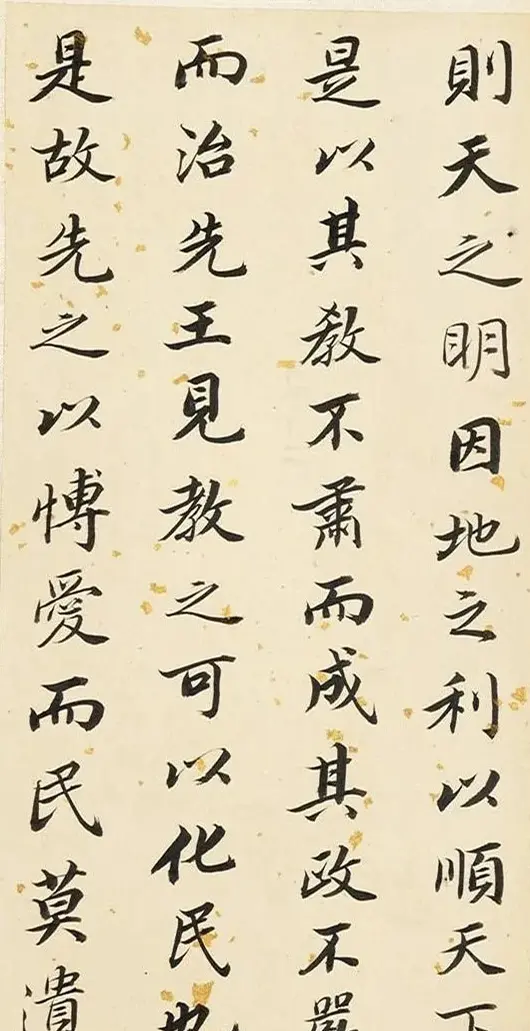 則天之明因地之利以順天下
是以其敎不肅而成其政不嚴
而治先王見教之可以化民也
是故先之以愽愛而民莫潰